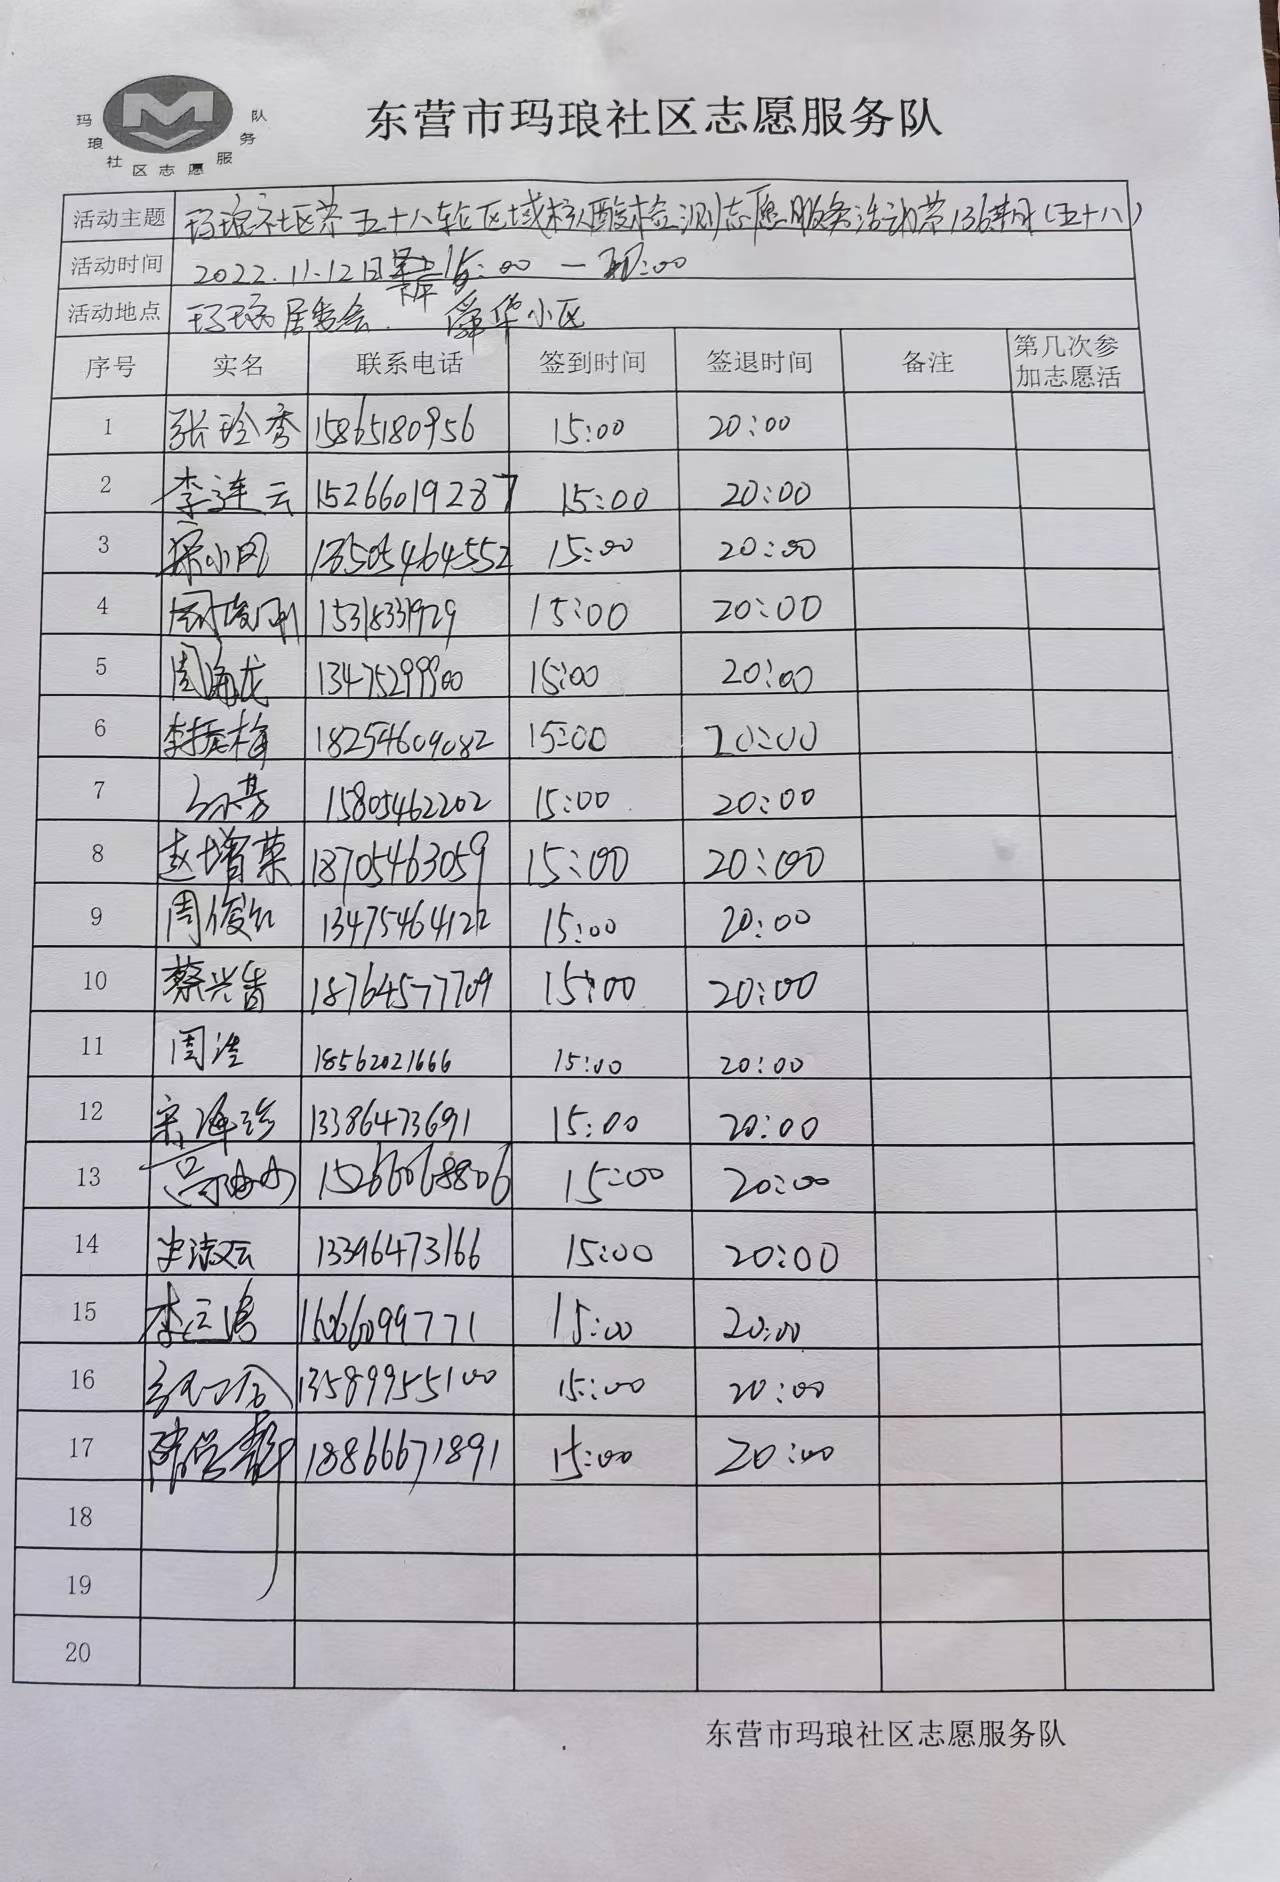 玛琅社区志愿服务队
东营市玛琅社区志愿服务队
活动主题 玛琅社区第五十八轮区域核酸检测志愿服务活动第136期(五十八)
活动时间 2022.11.12日 下午 :00 — :00
活动地点 玛琅居委会. 舜华小区
序号 实名 联系电话 签到时间 签退时间 备注 第几次参加志愿活
1 张玲秀 15865180956 15:00 20:00
2 李连云 15266019287 15:00 20:00
3 宋小风 13505464552 15:00 20:00
4 周俊 15318331929 15:00 20:00
5 周海龙 13475299900 15:00 20:00
6 李振梅 18254609082 15:00 20:00
7 芳 15805462202 15:00 20:00
8 赵增菜 18705463059 15:00 20:00
9 周俊红 13475464122 15:00 20:00
10 蔡兴 18764577709 15:00 20:00
11 周 18562021666 15:00 20:00
12 宋海珍 13386473691 15:00 20:00
13 15266068806 15:00 20:00
14 史 云 13396473166 15:00 20:00
15 李 15066099771 15:00 20:00
16 13589955100 15:00 20:00
17 陈 18866671891 15:00 20:00
18
19
20
东营市玛琅社区志愿服务队